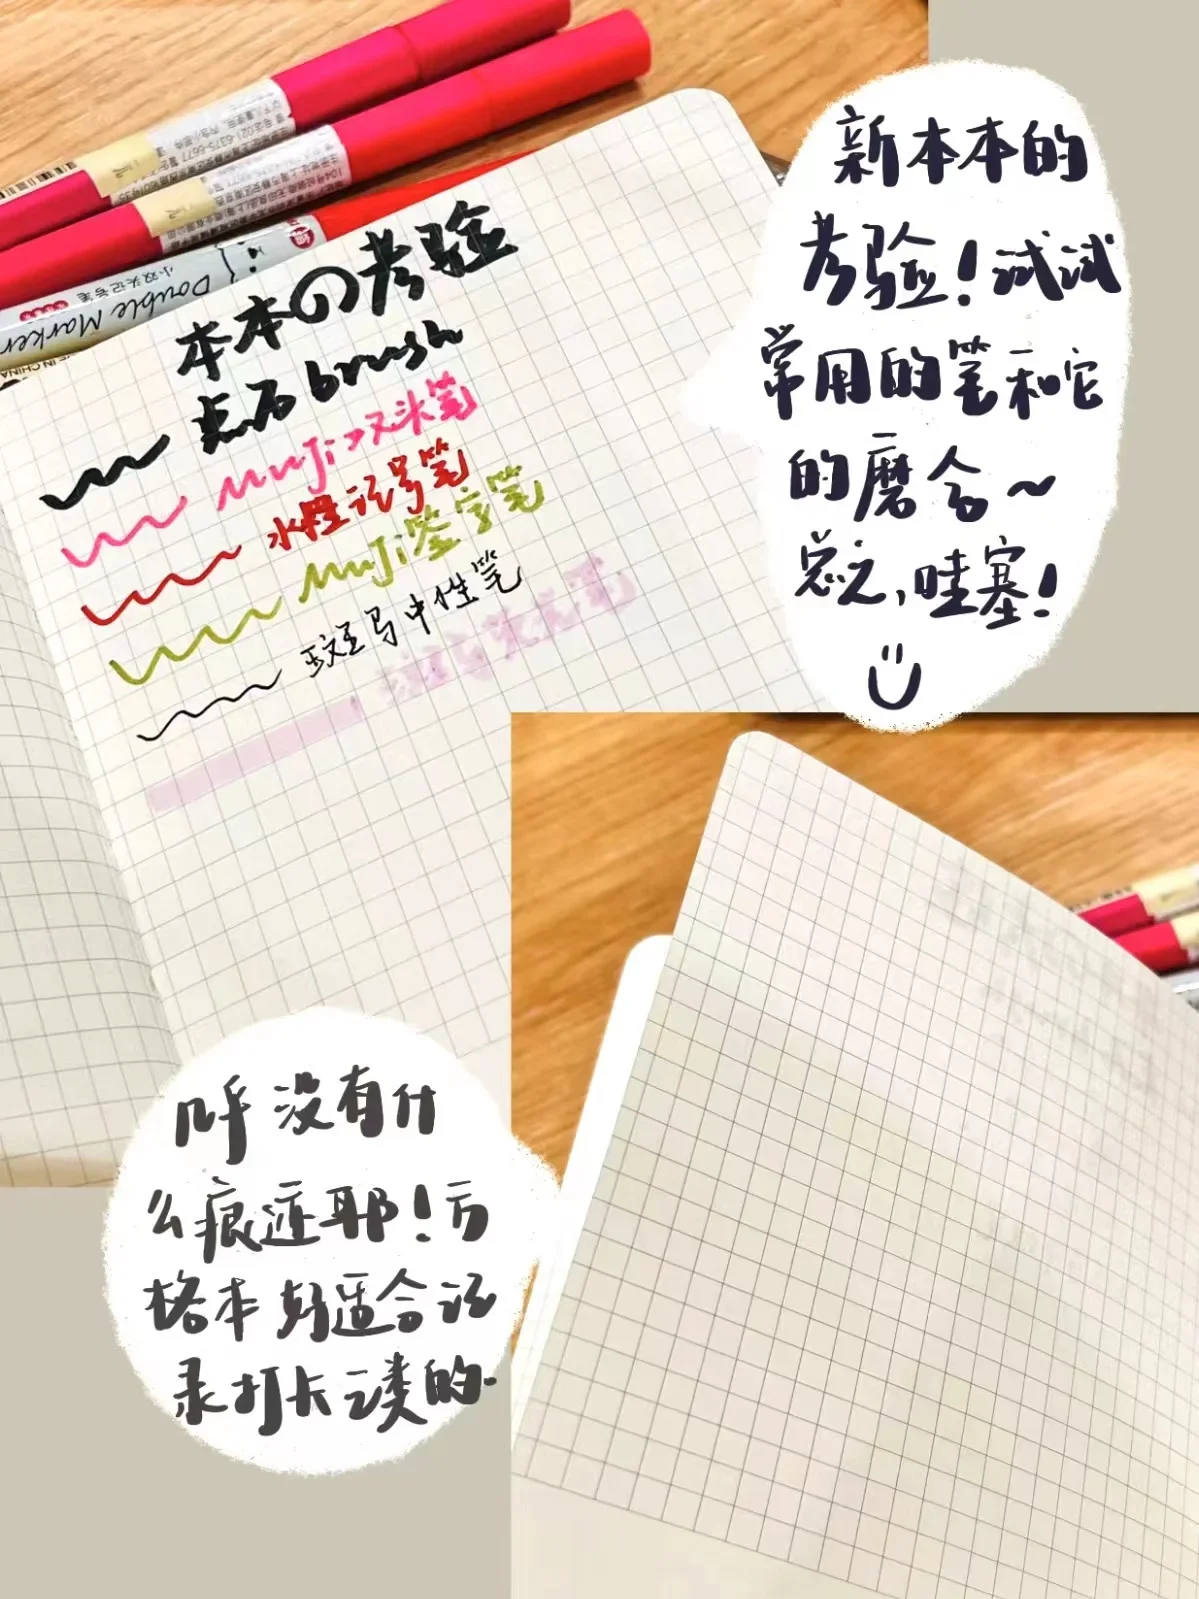 新本本的
考验！试试
常用的笔和它
的磨合~
总之，哇塞！
本本の考验
点石brush
MUJI双头笔
水性记号笔
MUJI签字笔
斑马中性笔
斑马荧光笔
Double Marker
小双头记号笔
呼 没有什
么痕迹耶！方
格本好适合记
录打卡之类的.